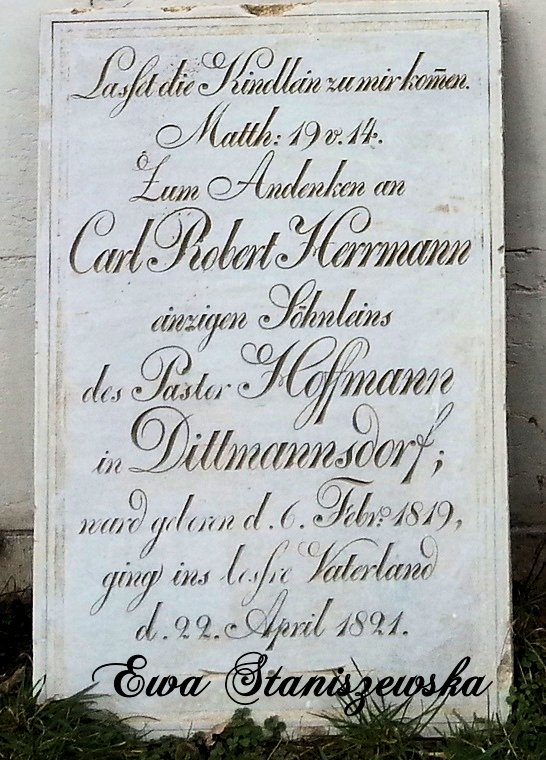 Lasset die Kindlein zu mir kom̄en.
Matth: 19 v. 14.
Zum Andenken an
Carl Robert Herrmann
einzigen Söhnleins
des Pastor Hoffmann
in Dittmannsdorf;
ward geboren d. 6. Febr: 1819,
ging ins bessre Vaterland
d. 22. April 1821.
Ewa Staniszewska